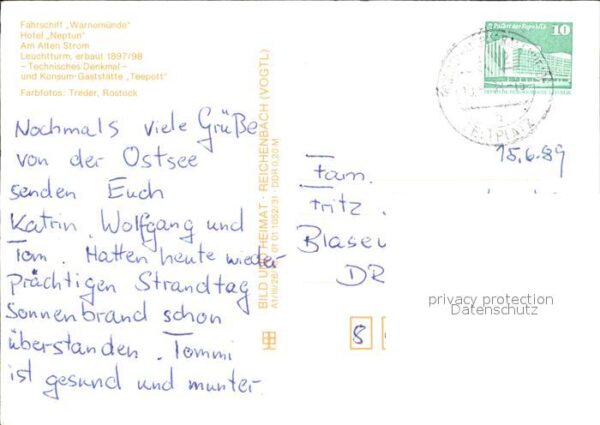 Fahrschiff „Warnemünde"
Hotel „Neptun"
Am Alten Strom
Leuchtturm, erbaut 1897/98
– Technisches Denkmal –
und Konsum-Gaststätte „Teepott"
Farbfotos: Treder, Rostock
Nochmals viele Grüße
von der Ostsee
senden Euch
Katrin, Wolfgang und
Tom. Hatten heute wieder
prächtigen Strandtag
Sonnenbrand schon
überstanden. Tommi
ist gesund und munter.
BILD UND HEIMAT · REICHENBACH (VOGTL)
DDR 0,20 M
Palast der Republik
10
15.6.89
Fam.
Fritz
DR
8
privacy protection
Datenschutz